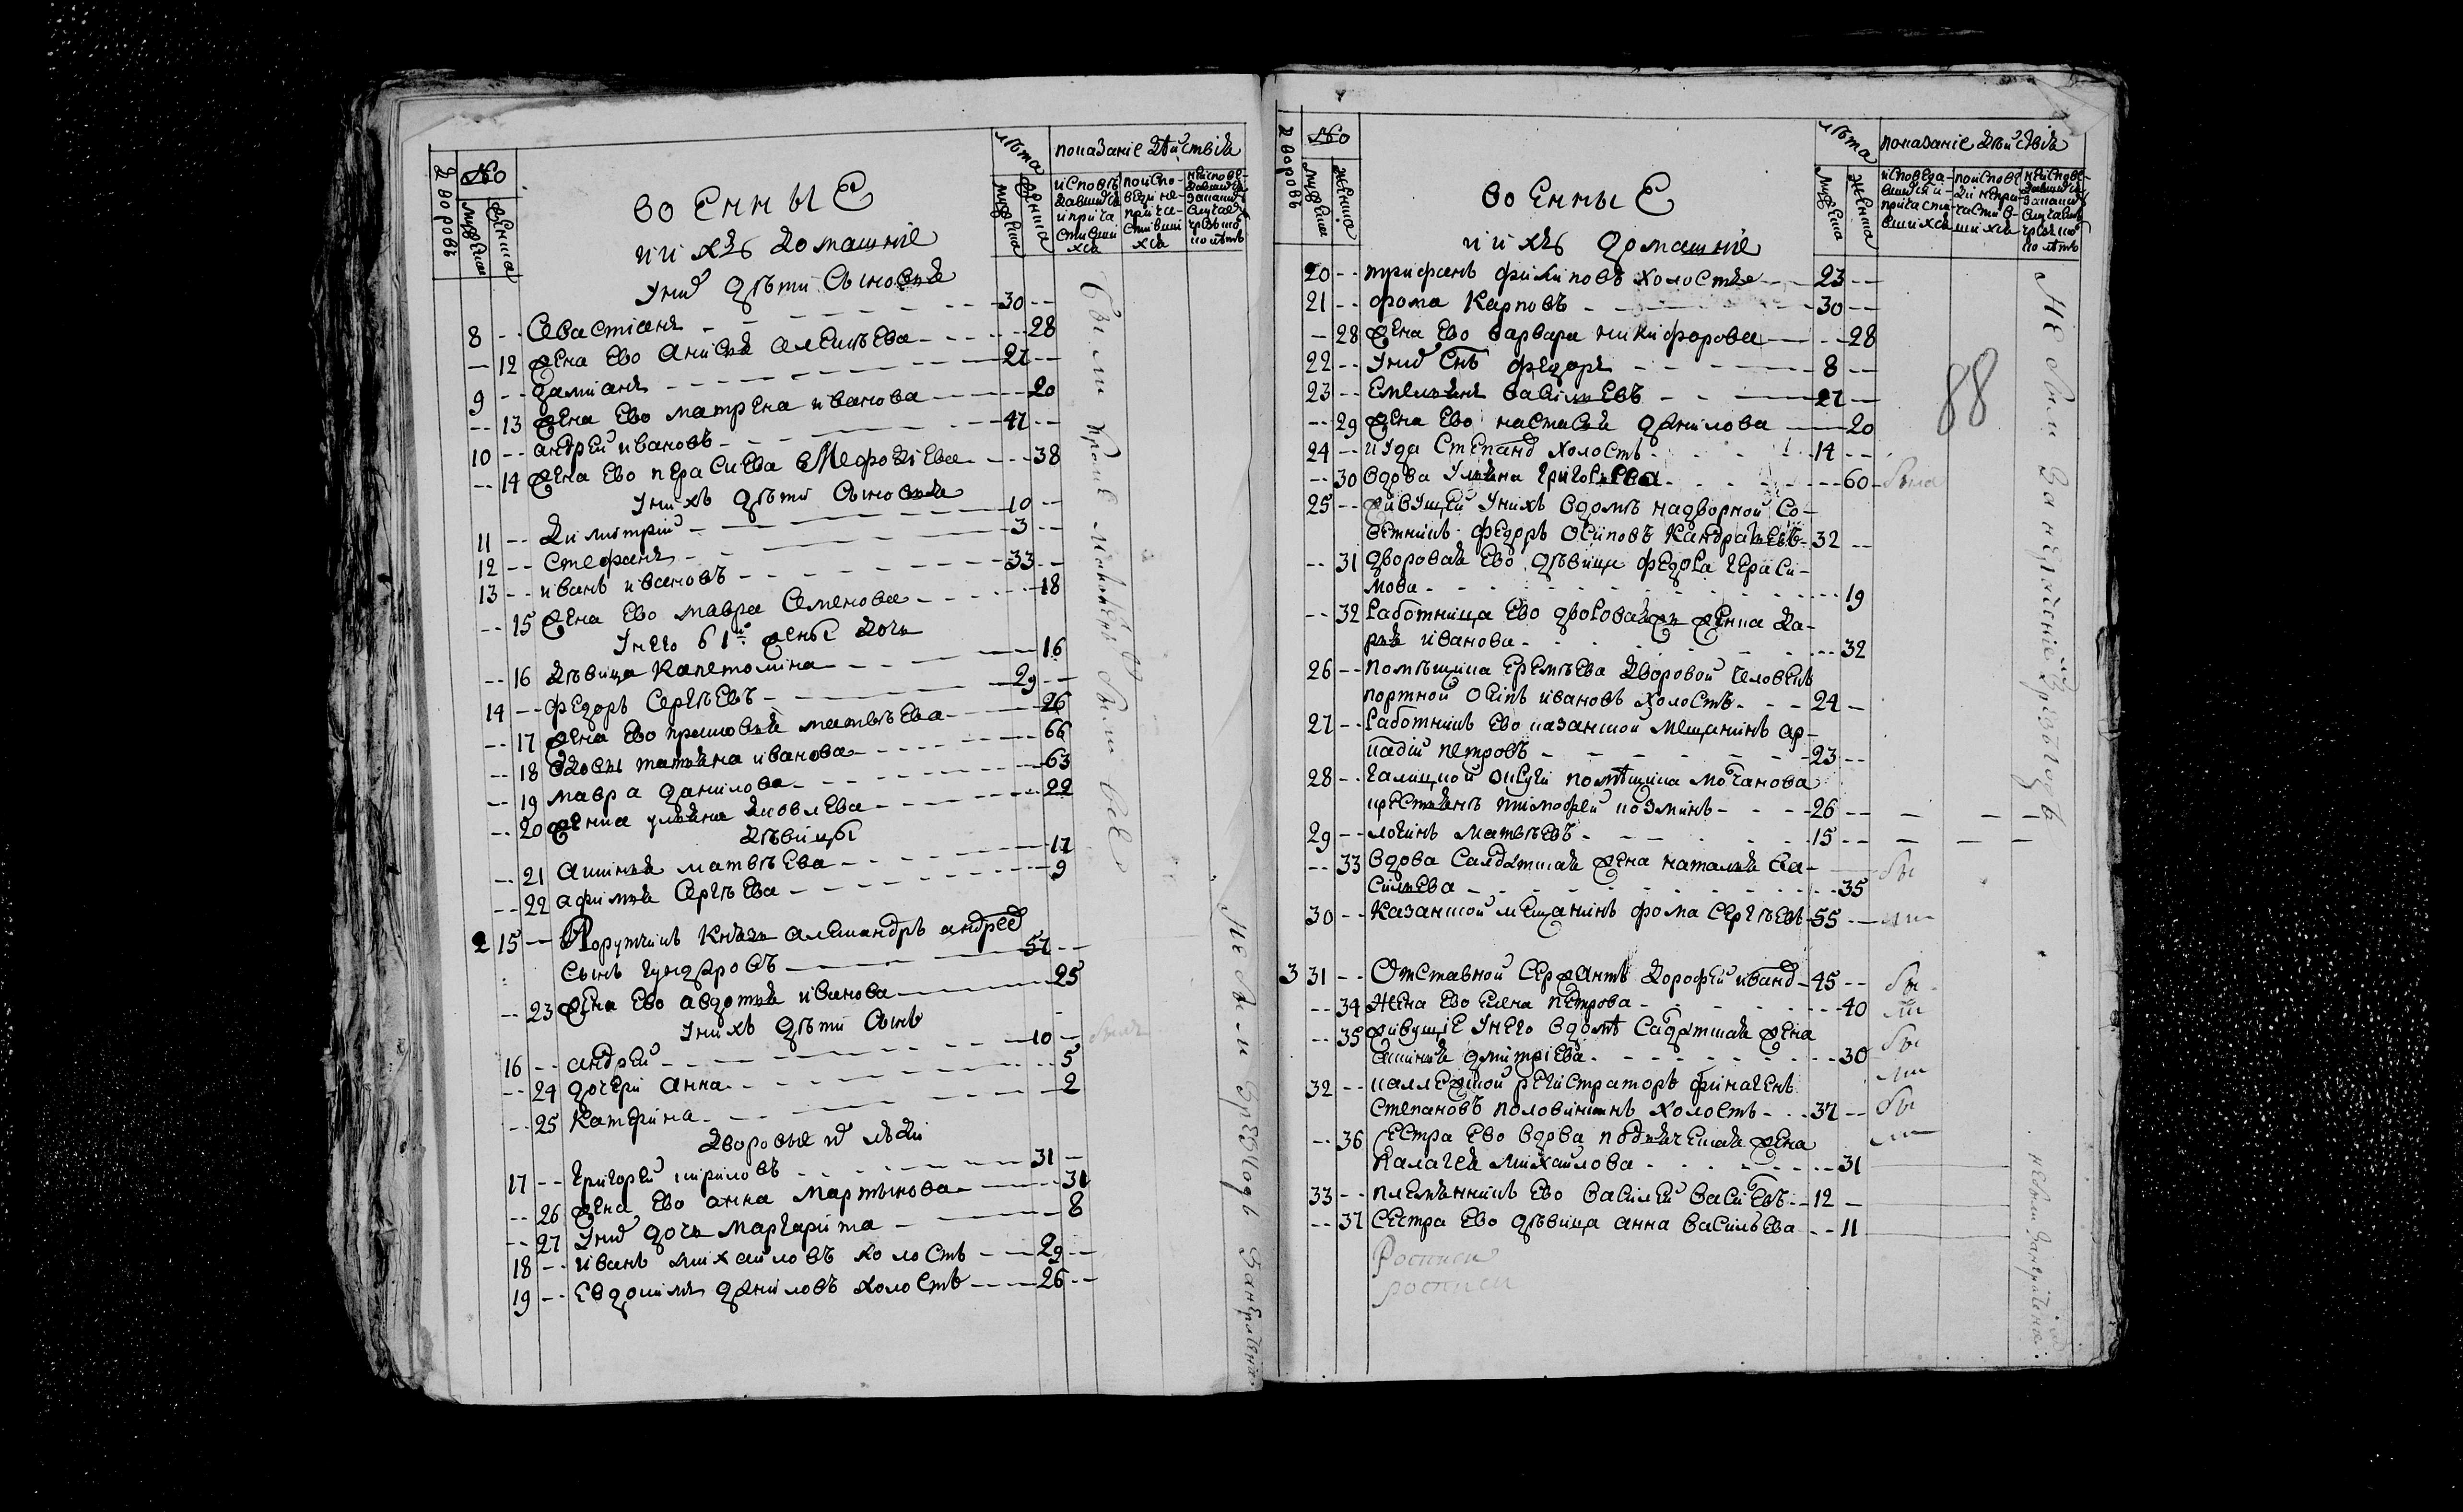 дворовъ
№
мужеска
женска
военныЕ
и ихъ домашнiе
лѣта
мужеска
женска
показанiе дѣйствiя
исповѣ-
давшихся
и прича
стивши
хся
поиспо-
веди не-
приča-
стивши
хся
У них дѣти сыновья
8 -- Севастiанъ - - - 30 --
-- 12 жена Ево анисья алексѣева - - - 28
9 -- дамианъ - - - 27 --
-- 13 жена Ево матрЕна иванова - - - 20
10 -- андрей ивановъ - - - 47 --
-- 14 жена Ево парасиева Мефодiева - - - 38
У нихъ дѣти сыновья
11 -- димитрiй - - - 10 --
12 -- стефанъ - - - 3 --
13 -- иванъ ивановъ - - - 33 --
-- 15 жена Ево мавра семенова - - - 18
У него б 1й жены дочь
-- 16 дѣвица капетолина - - - 16
14 -- федоръ сергѣевъ - - - 29 --
-- 17 жена Ево прасковья матвѣева - - - 26
-- 18 вдовы татьяна иванова - - - 66
-- 19 мавра данилова - - - 63
-- 20 женка ульяна яковлЕва - - - 22
дѣвицы
-- 21 аксинья матвѣева - - - 17
-- 22 афимья сергѣева - - - 9
2 15 -- Порутчикъ князь александръ андреев
сынъ гундоровъ - - - 57 --
-- 23 жена Ево авдотья иванова - - - 25
У нихъ дѣти сынъ
16 -- андрей - - - 10 -- былъ
-- 24 дочери анна - - - 5
-- 25 катерина - - - 2
дворовые их люди
17 -- григорей кириловъ - - - 31 --
-- 26 жена Ево анна мартынова - - - 31
-- 27 У них дочь маргарита - - - 8
18 -- иванъ михаиловъ холостъ - - - 29 --
19 -- Евдокимъ даниловъ холостъ - - - 26 --
не бы-и
дворовъ
№
мужеска
женска
военныЕ
и ихъ домашнiе
лѣта
мужеска
женска
показанiе дѣйствiя
исповеда-
вшихся и
причасти-
вшихся
поисповѣ
ди непри-
частив-
шихся
20 -- трифанъ филиповъ холостъ - - - 23 --
21 -- фома Карповъ - - - 30 --
-- 28 жена Ево варвара никифорова - - - 28
22 -- У них снъ федоръ - - - 8 --
23 -- емельянъ васильевъ - - - 27 --
-- 29 жена Ево настасья данилова - - - 20
24 -- иуда степанов холостъ - - - 14 --
-- 30 вдова Ульяна григорьева - - - 60 была
25 -- живущей У нихъ в домѣ надворной со-
ветникъ федоръ осиповъ кандратьевъ 32 --
-- 31 дворовая Ево дѣвица федора гераси-
мова - - - 19
-- 32 работница Ево дворовая женка да-
рья иванова - - - 32
26 -- помѣщика ЕремѣЕва дворовой человекъ
портной осипъ ивановъ холостъ - - - 24 --
27 -- работникъ Ево казанской мещанинъ ар-
кадiй петровъ - - - 23 --
28 -- галицкой округи помѣщика молчанова
крестьянъ тимофей козминъ - - - 26 --
29 -- логинъ матвѣевъ - - - 15 --
-- 33 вдова салдатская жена наталья ва-
сильева - - - 35
бы
30 -- Казанской мещанинъ фома сергѣевъ 55 --
ли
3 31 -- Отставной сержантъ дорофей иванов 45 -- бы
-- 34 Жена Ево елена петрова - - - 40 ли
-- 35 живущiЕ У него в домѣ садатская жена
аксинья дмитрiева - - - 30
бы
ли
32 -- каллежской регистраторъ финагенъ
степановъ половинкинъ холостъ - - - 37 -- бы
-- 36 сестра Ево вдова подъяческая жена
палагея михаилова - - - 31
ли
33 -- племянникъ Ево василей васильевъ - - 12 --
-- 37 сестра Ево дѣвица анна васильева - - 11
Росписи
росписи
88